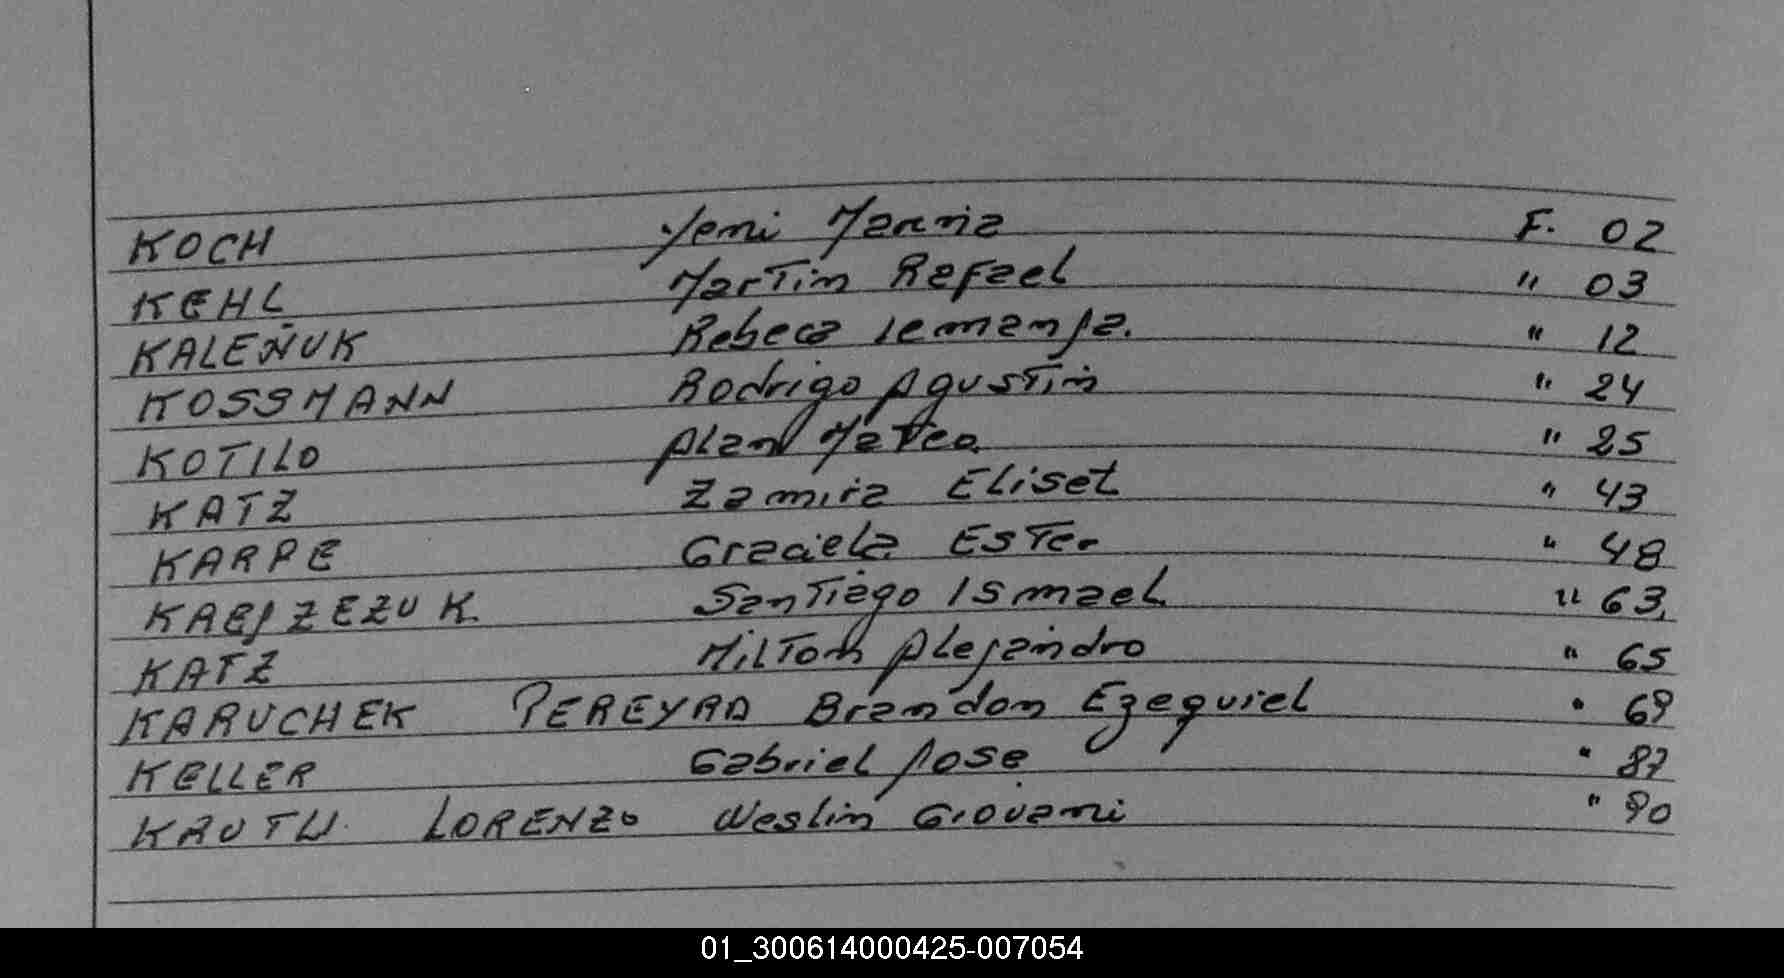 KOCH Yeni Marina F. 02
KEHL Martin Rafael " 03
KALEÑUK Rebeca Iemanja. " 12
KOSSMANN Rodrigo Agustin " 24
KOTILO Alan Mateo. " 25
KATZ Zamira Eliset " 43
KARPE Graciela Ester " 48
Santiago Ismael " 63
KATZ Milton Alejandro " 65
KARUCHEK PEREYRA Brandon Ezequiel " 69
KELLER Gabriel Jose " 87
LORENZO Weslin Giovani " 90
01_300614000425-007054